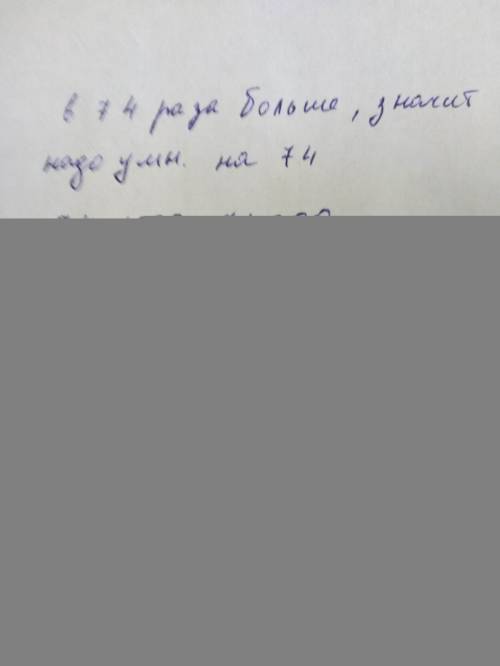 в 74 раза больше, значит
надо умн. на 74